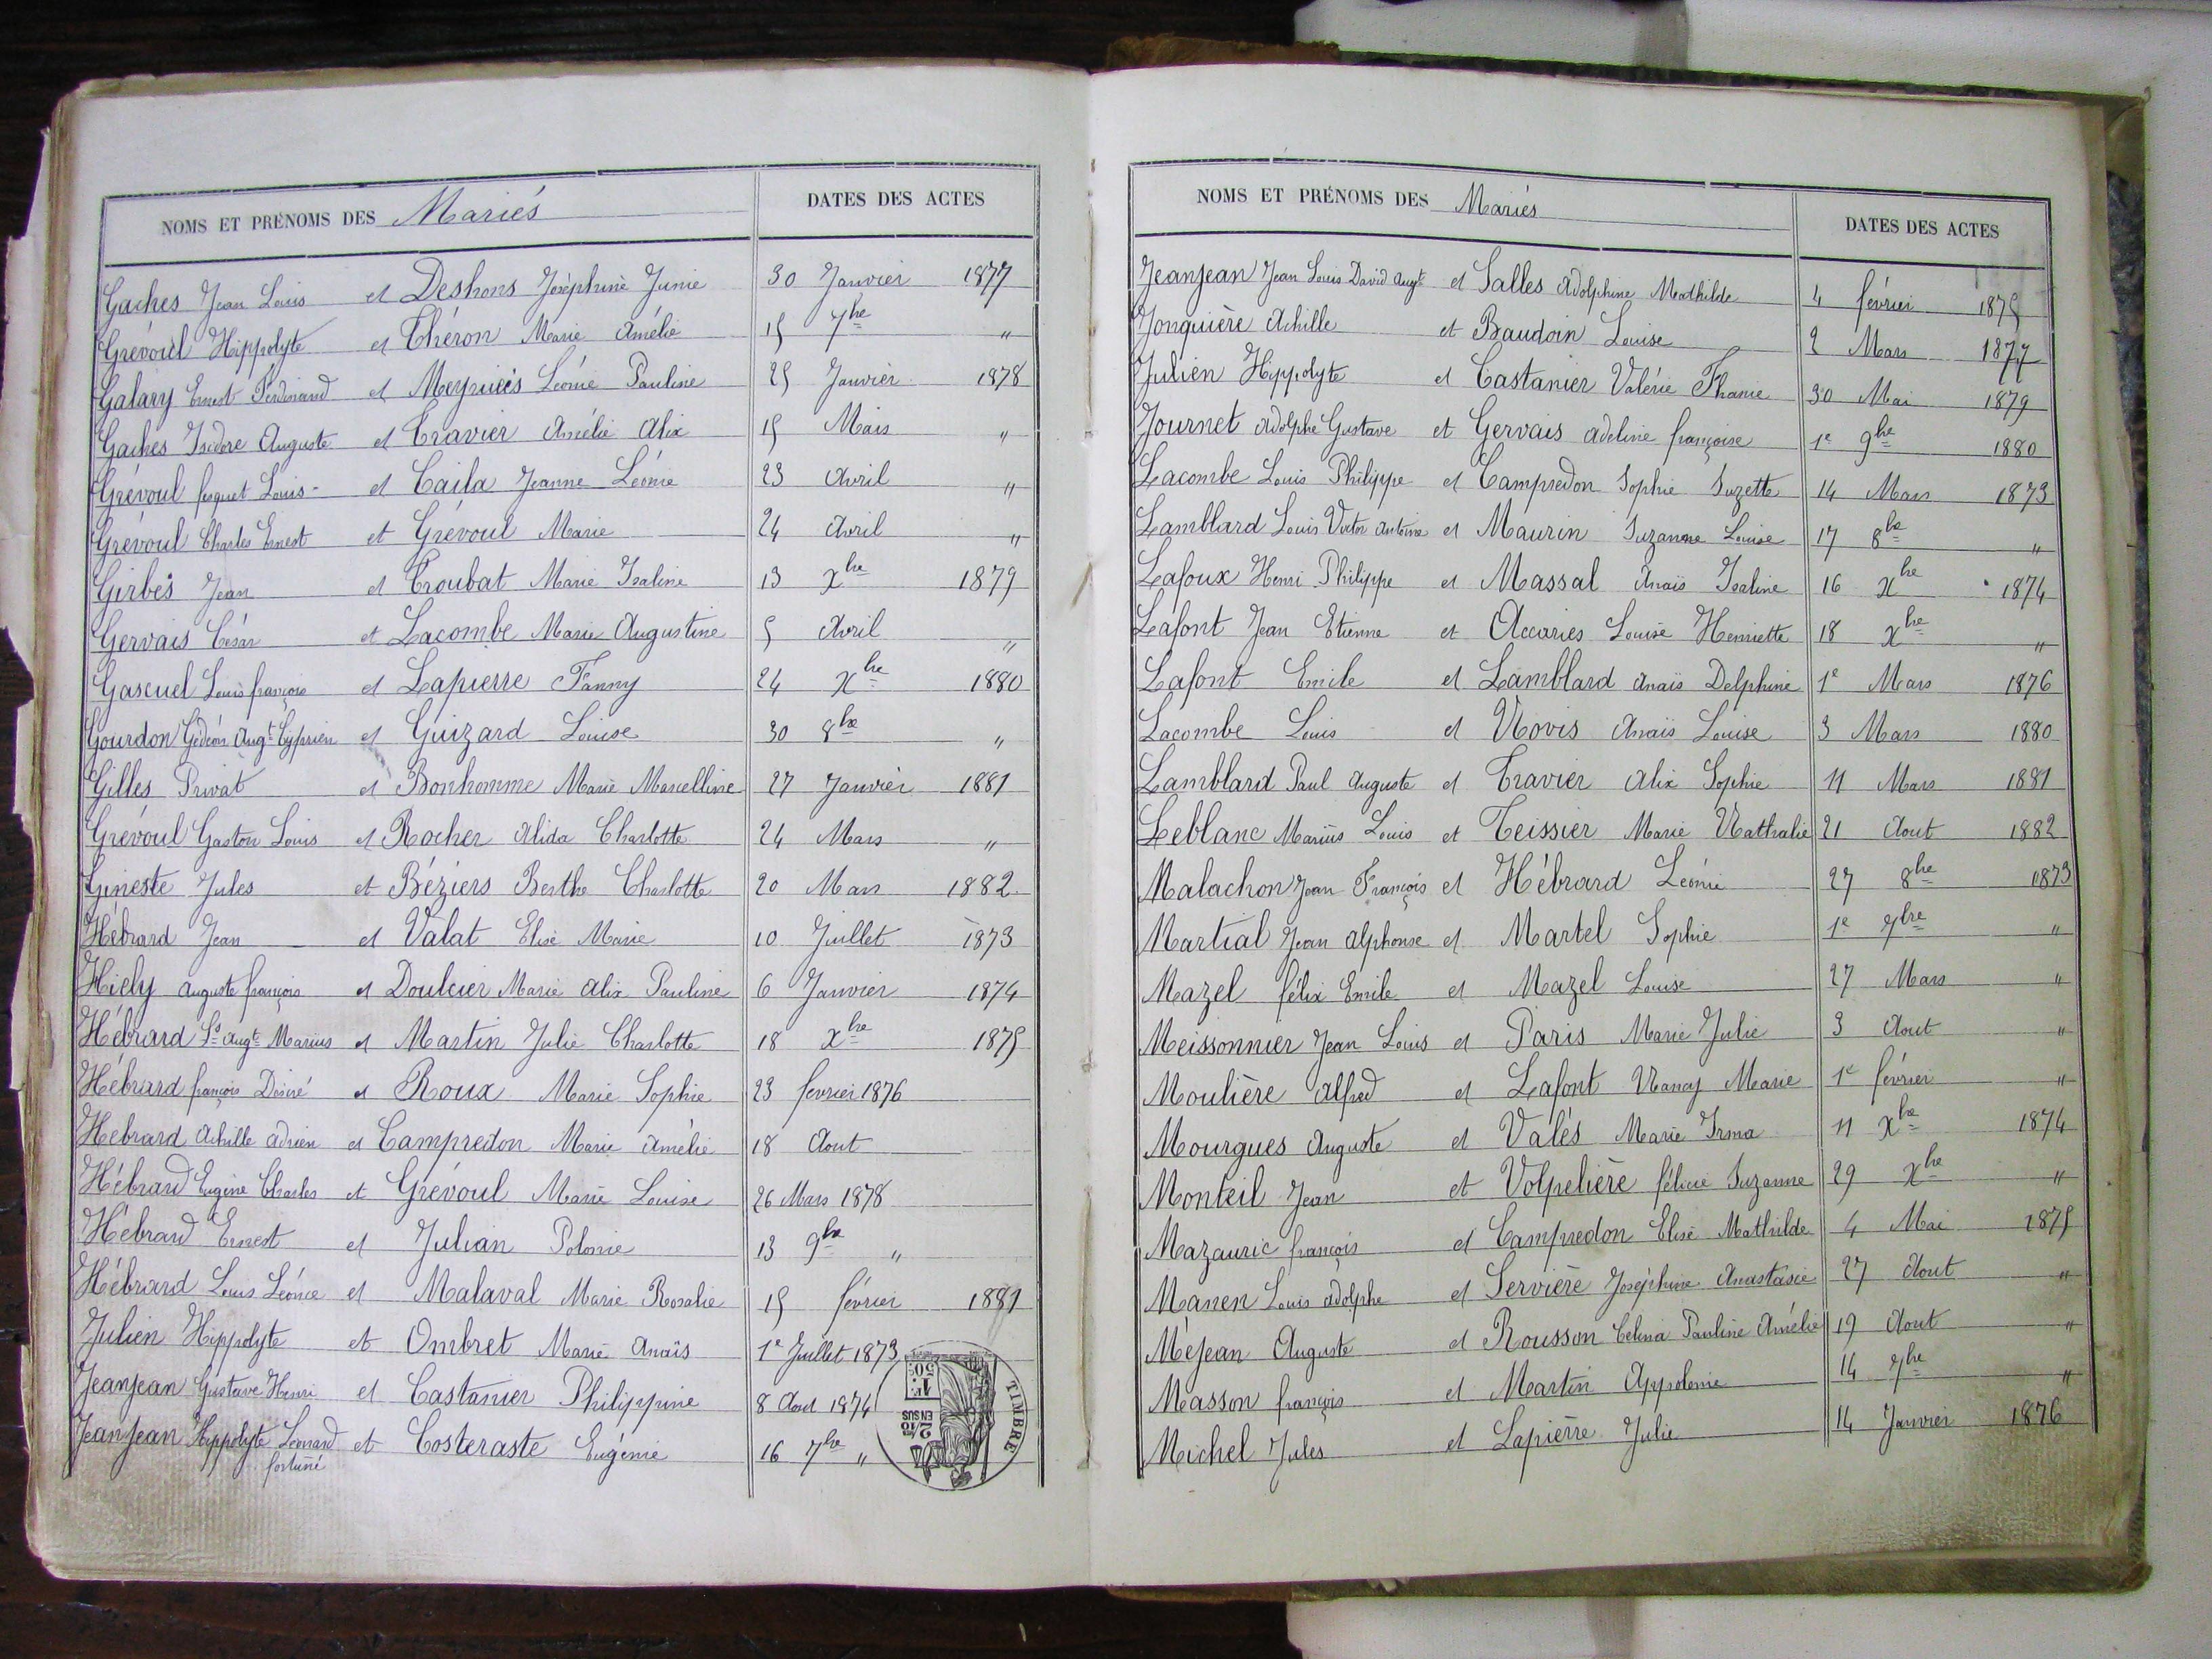 NOMS ET PRÉNOMS DES Mariés DATES DES ACTES
Gaches Jean Louis et Deshons Joséphine Junie 30 Janvier 1877
Grévoul Hippolyte et Théron Marie Amélie 15 7bre "
Galary Ernest Ferdinand et Meynieis Léonie Pauline 25 Janvier 1878
Gaches Isidore Auguste et Travier Amélie Alix 15 Mars "
Grévoul fesquet Louis - et Caila Jeanne Léonie 23 Avril "
Grévoul Charles Ernest et Grévoul Marie 24 Avril "
Girbés Jean et Troubat Marie Isaline 13 Xbre 1879
Gervais César et Lacombe Marie Augustine 5 Avril "
Gascuel Louis françois et Lapierre Fanny 24 Xbre 1880
Gourdon Gédéon Augte Cyprien et Guizard Louise 30 8bre "
Gilles Privat et Bonhomme Marie Marcelline 27 Janvier 1881
Grévoul Gaston Louis et Rocher Alida Charlotte 24 Mars "
Gineste Jules et Béziers Berthe Charlotte 20 Mars 1882
Hébrard Jean et Valat Elise Marie 10 Juillet 1873
Hiely auguste françois et Doulcier Marie Alix Pauline 6 Janvier 1874
Hébrard Ls Augte Marius et Martin Julie Charlotte 18 Xbre 1875
Hébrard françois Désiré et Roux Marie Sophie 23 fevrier 1876
Hébrard Achille adrien et Campredon Marie Amélie 18 Aout
Hébrard Eugène Charles et Grévoul Marie Louise 26 Mars 1878
Hébrard Ernest et Julian Polonie 13 9bre "
Hébrard Louis Léonce et Malaval Marie Rosalie 15 février 1881
Julien Hippolyte et Ombret Marie Anaïs 1e Juillet 1873
Jeanjean Gustave Henri et Castanier Philippine 8 Aout 1874
Jeanjean Hippolyte Léonard et Costeraste Eugénie 16 7bre "
fortuné
TIMBRE
1F. 50c.
2/10 EN SUS
NOMS ET PRÉNOMS DES Mariés DATES DES ACTES
Jeanjean Jean Louis David Augte et Salles Adolphine Mathilde 4 février 1875
Jonquière Achille et Baudoin Louise 2 Mars 1877
Julien Hippolyte et Castanier Valérie Fhanie 30 Mai 1879
Journet Adolphe Gustave et Gervais adeline françoise 1e 9bre 1880
Lacombe Louis Philippe et Campredon Sophie Suzette 14 Mars 1873
Lamblard Louis Victor Antoine et Maurin Suzanne Louise 17 8bre "
Lafoux Henri Philippe et Massal Anaïs Isaline 16 Xbre 1874
Lafont Jean Etienne et Accaries Louise Henriette 18 Xbre "
Lafont Emile et Lamblard Anaïs Delphine 1e Mars 1876
Lacombe Louis et Novis Anaïs Louise 3 Mars 1880
Lamblard Paul Auguste et Travier Alix Sophie 11 Mars 1881
Leblanc Marius Louis et Teissier Marie Nathalie 21 Aout 1882
Malachon Jean François et Hébrard Léonie 27 8bre 1873
Martial Jean alphonse et Martel Sophie 1e 7bre "
Mazel félix Emile et Mazel Louise 27 Mars "
Meissonnier Jean Louis et Paris Marie Julie 3 Aout "
Moulière Alfred et Lafont Nancy Marie 1e février "
Mourgues Auguste et Valés Marie Irma 11 Xbre 1874
Monteil Jean et Volpelière félicie Suzanne 29 Xbre "
Mazauric françois et Campredon Elise Mathilde 4 Mai 1875
Manen Louis adolphe et Servière Joséphine Anastasie 27 Aout "
Méjean Auguste et Rousson Célina Pauline Amélie 19 Aout "
Masson françois et Martin Appolonie 14 7bre "
Michel Jules et Lapierre Julie 14 Janvier 1876